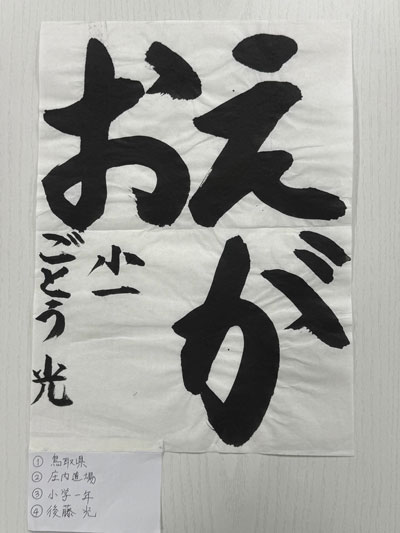 えが
お
小一
ごとう光
① 鳥取県
② 庄内道場
③ 小学一年
④ 後藤 光